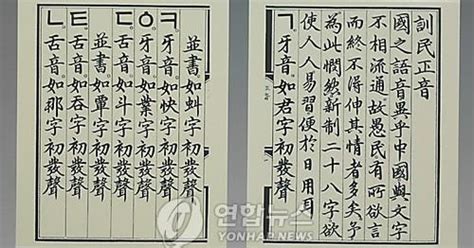 訓民正音
國之語音異乎中國與文字
不相流通故愚民有所欲言
而終不得伸其情者多矣予
為此憫然新制二十八字欲
使人人易習便於日用耳
ㄱ牙音如君字初發聲
並書如虯字初發聲
ㅋ牙音如快字初發聲
ㆁ牙音如業字初發聲
ㄷ舌音如斗字初發聲
並書如覃字初發聲
ㅌ舌音如吞字初發聲
ㄴ舌音如那字初發聲
연합뉴스
YONHAP NEWS